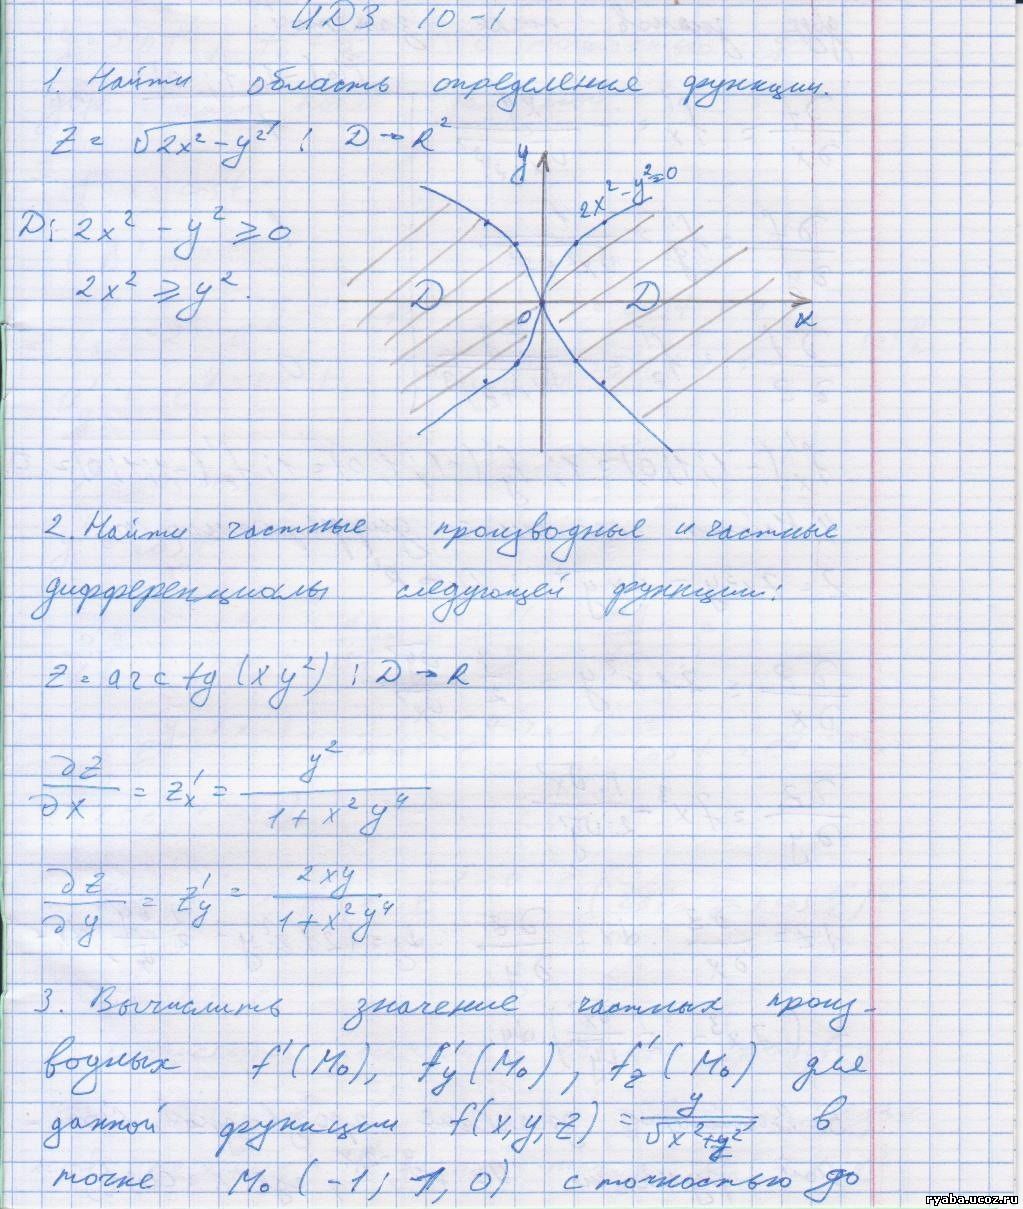 ИДЗ 10-1
1. Найти область определения функции.
Z = √2x² - y² : D → R²
y
2x² - y² = 0
D: 2x² - y² ≥ 0
2x² ≥ y².
D
D
0
x
2. Найти частные производные и частные
дифференциалы следующей функции:
Z = arctg (xy²) : D → R
∂Z/∂x = Z'x = y²/1 + x²y⁴
∂Z/∂y = Z'y = 2xy/1 + x²y⁴
3. Вычислить значение частных произ-
водных f'(M₀), f'y(M₀), f'z(M₀) для
данной функции f(x, y, z) = y/√x²+y² в
точке M₀ (-1; 1, 0) с точностью до
ryaba.ucoz.ru